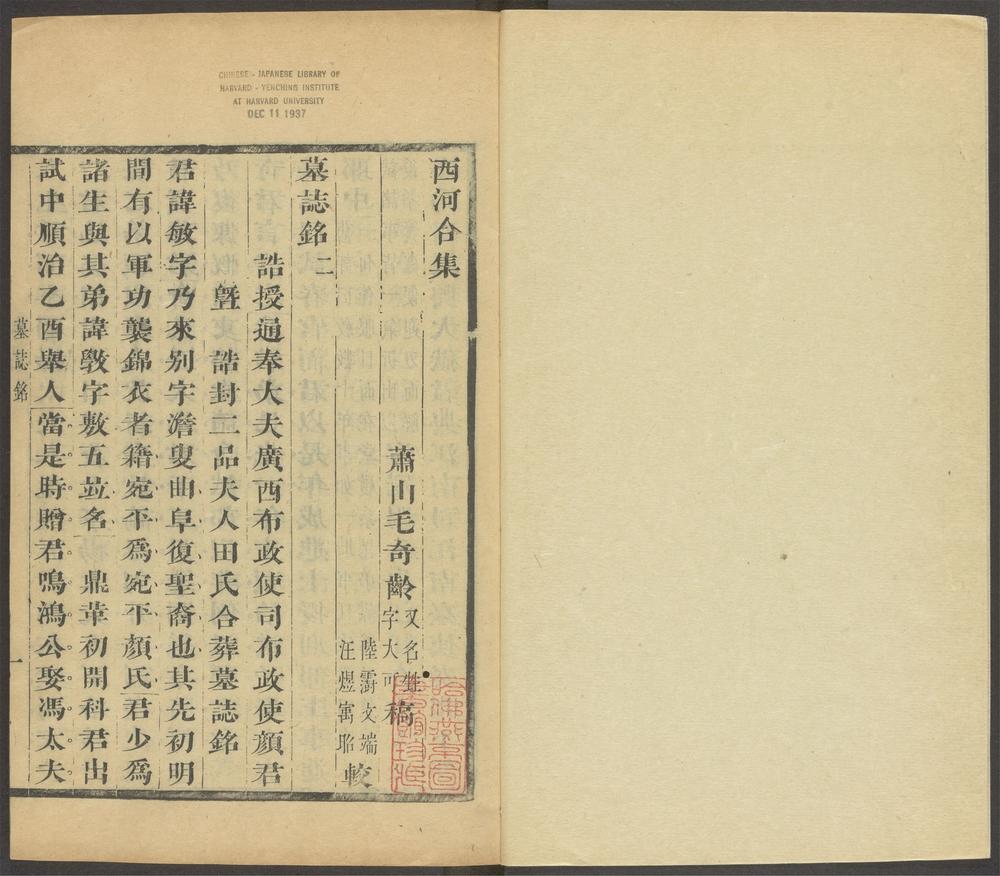 CHINESE - JAPANESE LIBRARY OF
HARVARD - YENCHING INSTITUTE
AT HARVARD UNIVERSITY
DEC 11 1937
西河合集
蕭山毛奇齡又名甡字大可稿
陸霨文端
汪煜寓昭較
墓誌銘二
誥授通奉大夫廣西布政使司布政使顏君
曁誥封二品夫人田氏合葬墓誌銘
君諱敏字乃來别字澹叟曲阜復聖裔也其先初明
間有以軍功襲錦衣者籍宛平爲宛平顏氏君少爲
諸生與其弟諱斆字敷五並名鼎革初開科君出
試中順治乙酉舉人當是時贈君鳴鴻公娶馮太夫
墓誌銘
一